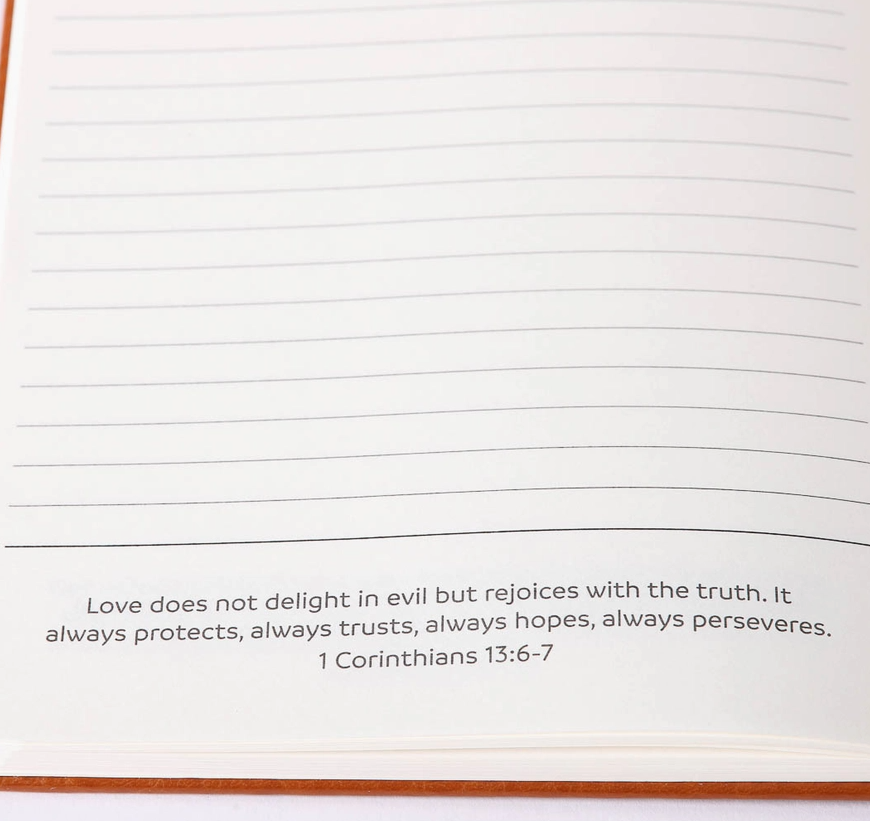 Love does not delight in evil but rejoices with the truth. It
always protects, always trusts, always hopes, always perseveres.
1 Corinthians 13:6-7